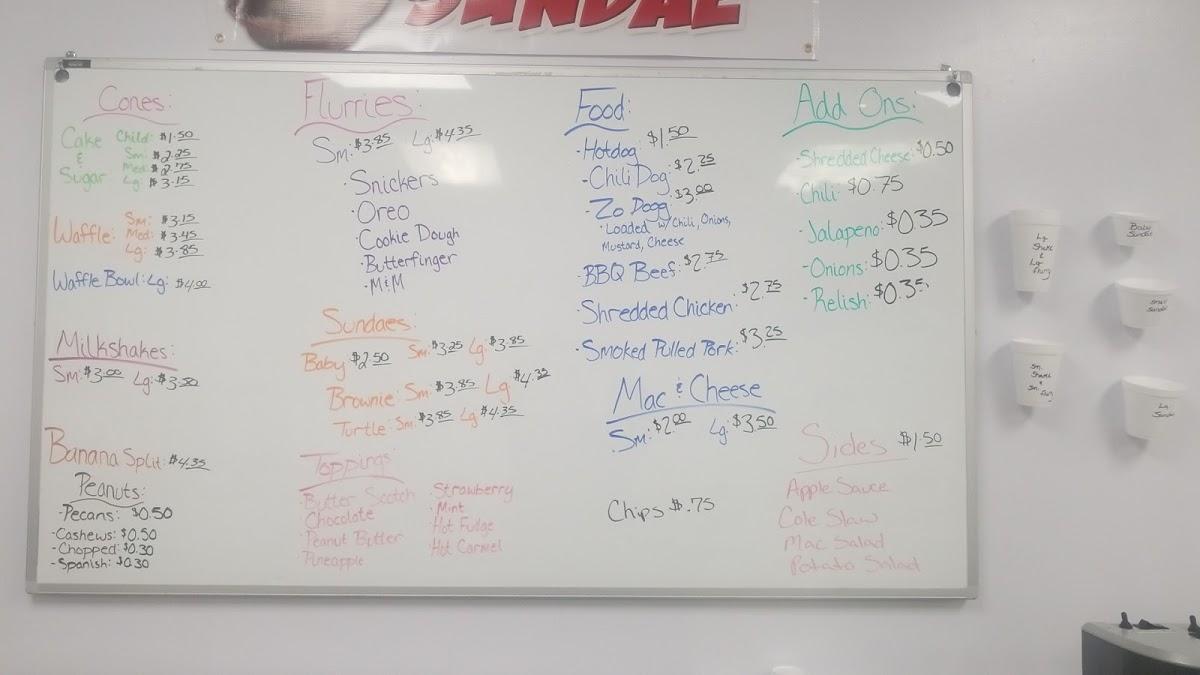 SUNDAE
Cones:
Cake & Sugar
Child: $1.50
Sm: $2.25
Med: $2.75
Lg: $3.15
Waffle:
Sm: $3.15
Med: $3.45
Lg: $3.85
Waffle Bowl: Lg: $4.00
Milkshakes:
Sm: $3.00 Lg: $3.50
Banana Split: $4.35
Peanuts:
- Pecans: $0.50
- Cashews: $0.50
- Chopped: $0.30
- Spanish: $0.30
Flurries:
Sm: $3.85 Lg: $4.35
· Snickers
· Oreo
· Cookie Dough
· Butterfinger
· M&M
Sundaes:
Baby $2.50 Sm: $3.25 Lg: $3.85
Brownie: Sm: $3.85 Lg: $4.35
Turtle: Sm: $3.85 Lg $4.35
Toppings:
· Butter Scotch
· Chocolate
· Peanut Butter
· Pineapple
· Strawberry
· Mint
· Hot Fudge
· Hot Carmel
Food:
- Hotdog $1.50
- Chili Dog: $2.25
- Zo Dogg: $3.00
· Loaded w/ Chili, Onions,
Mustard, Cheese
· BBQ Beef: $2.75
· Shredded Chicken: $2.75
· Smoked Pulled Pork: $3.25
Mac & Cheese
Sm: $2.00 Lg: $3.50
Chips $.75
Add Ons:
· Shredded Cheese: $0.50
· Chili: $0.75
· Jalapeno: $0.35
· Onions: $0.35
· Relish: $0.35
Sides $1.50
Apple Sauce
Cole Slaw
Mac Salad
Potato Salad
Lg
Shake
&
Lg
Flurry
Baby
Sundae
Small
Sundae
Sm.
Shake
&
Sm.
Flurry
Lg
Sundae